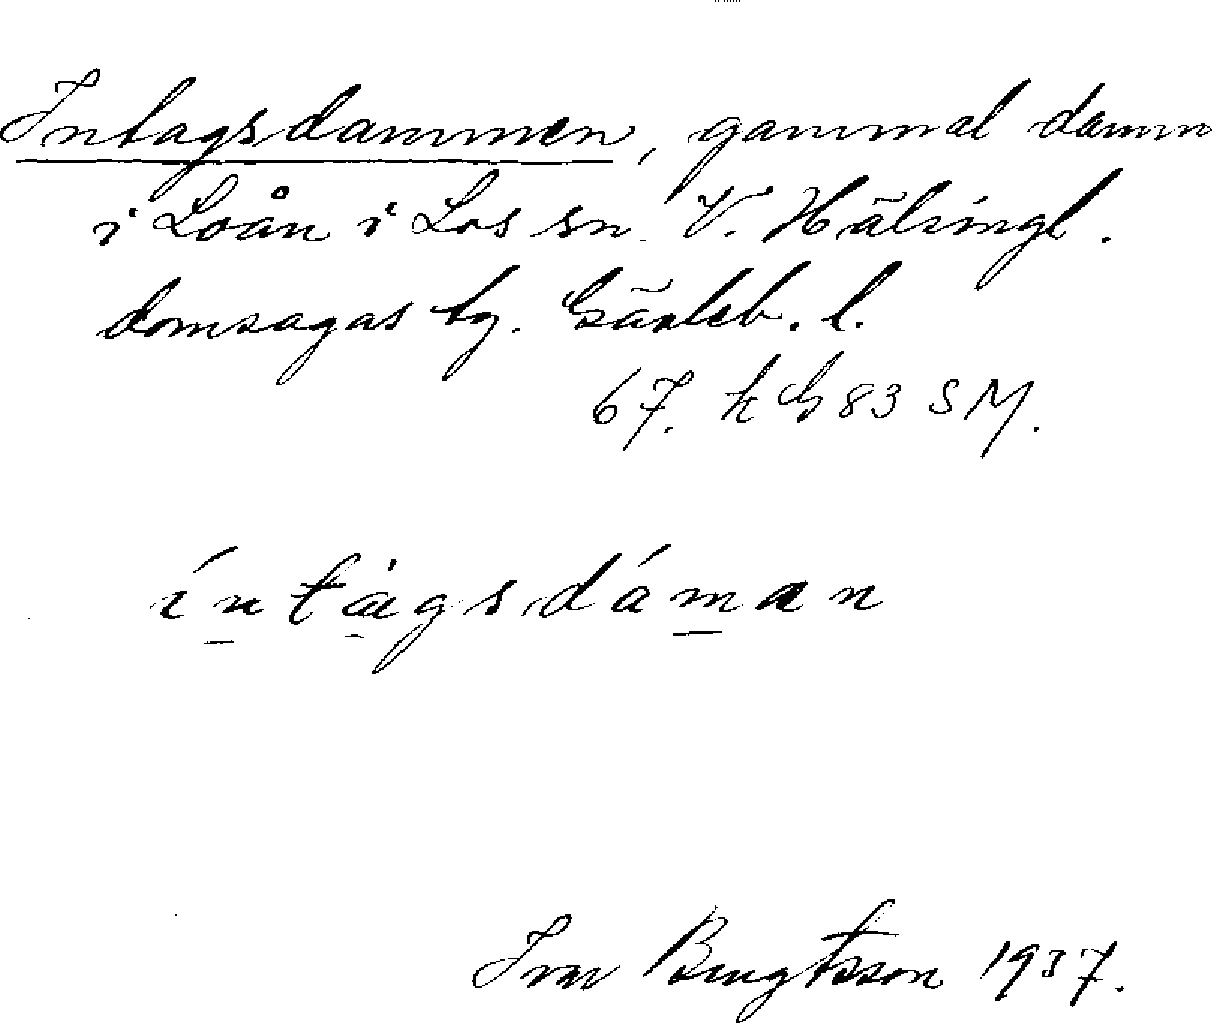 Intagsdammen, gammal damm
i Loån i Los sn. V. Hälsingl.
domsagas tg. Gävleb. l.
67. k G 83 SM.
íntagsdáman
Ivar Bengtsson 1937.